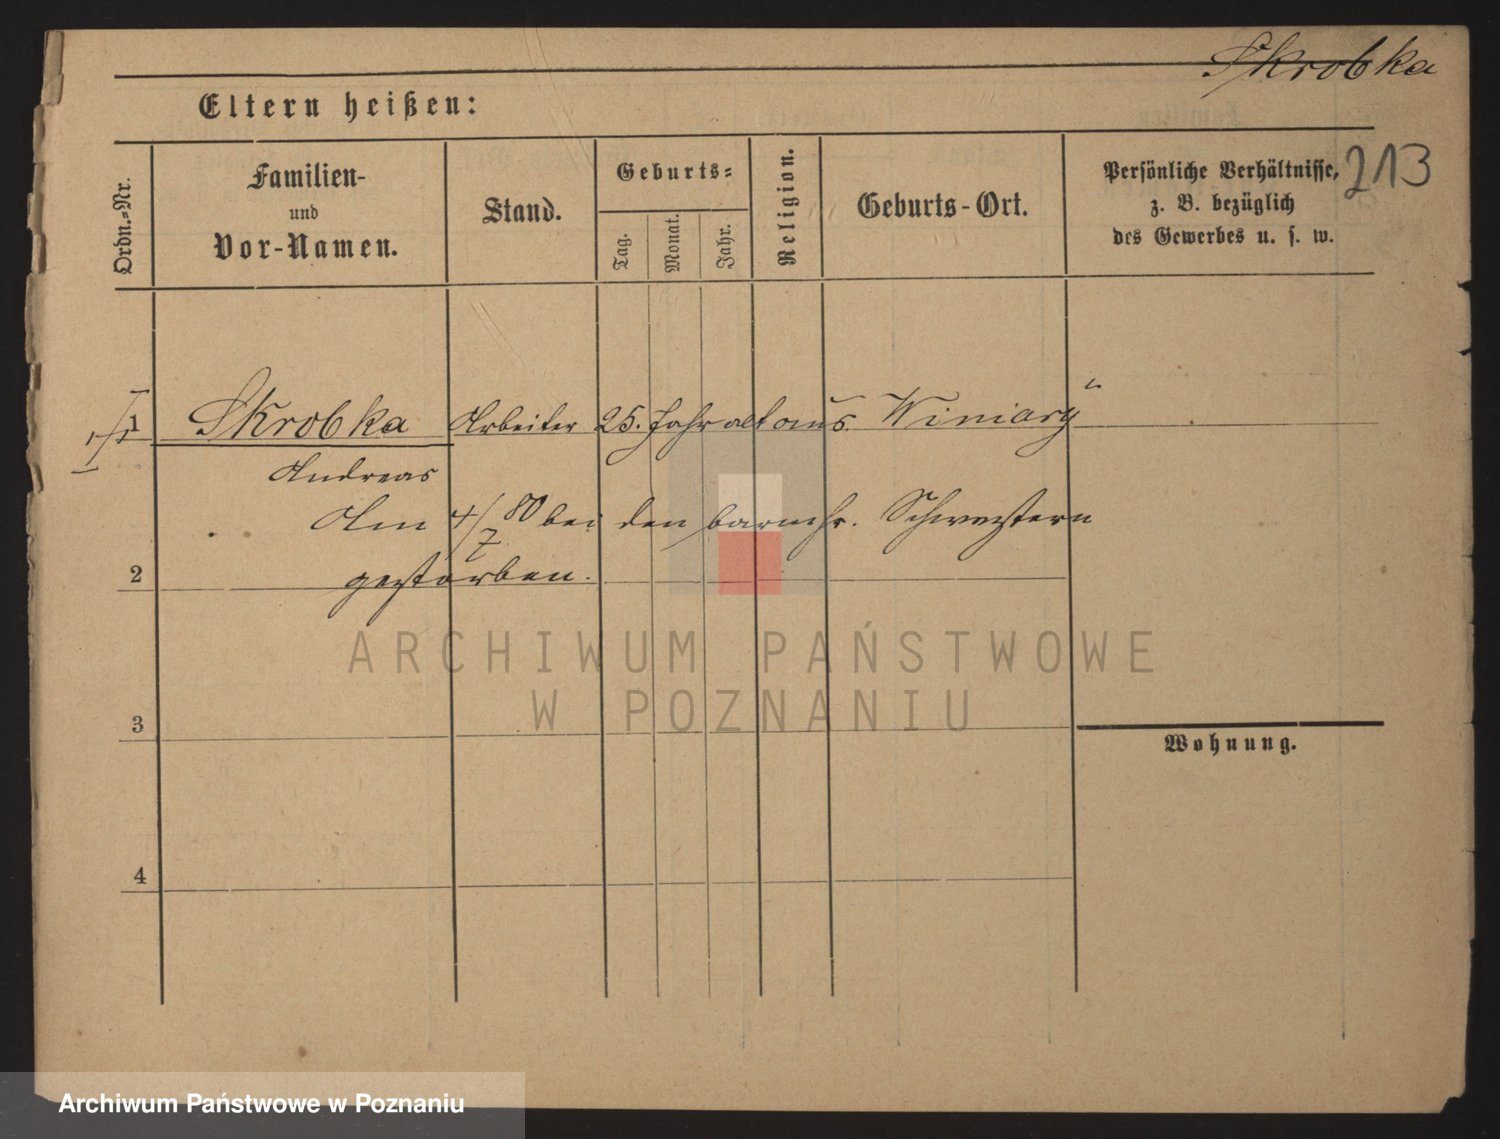 Skrobka
Eltern heißen:
213
Ordn.=Nr.
Familien-
und
Vor-Namen.
Stand.
Geburts=
Tag.
Monat.
Jahr.
Religion.
Geburts-Ort.
Persönliche Verhältnisse,
z. B. bezüglich
des Gewerbes u. s. w.
1 Skrobka Arbeiter 25. Jahr alt aus. Winiary
Andreas
Am 4/7 80 bei den barmh. Schwestern
2 gestorben.
3
Wohnung.
4
ARCHIWUM PAŃSTWOWE
W POZNANIU
Archiwum Państwowe w Poznaniu